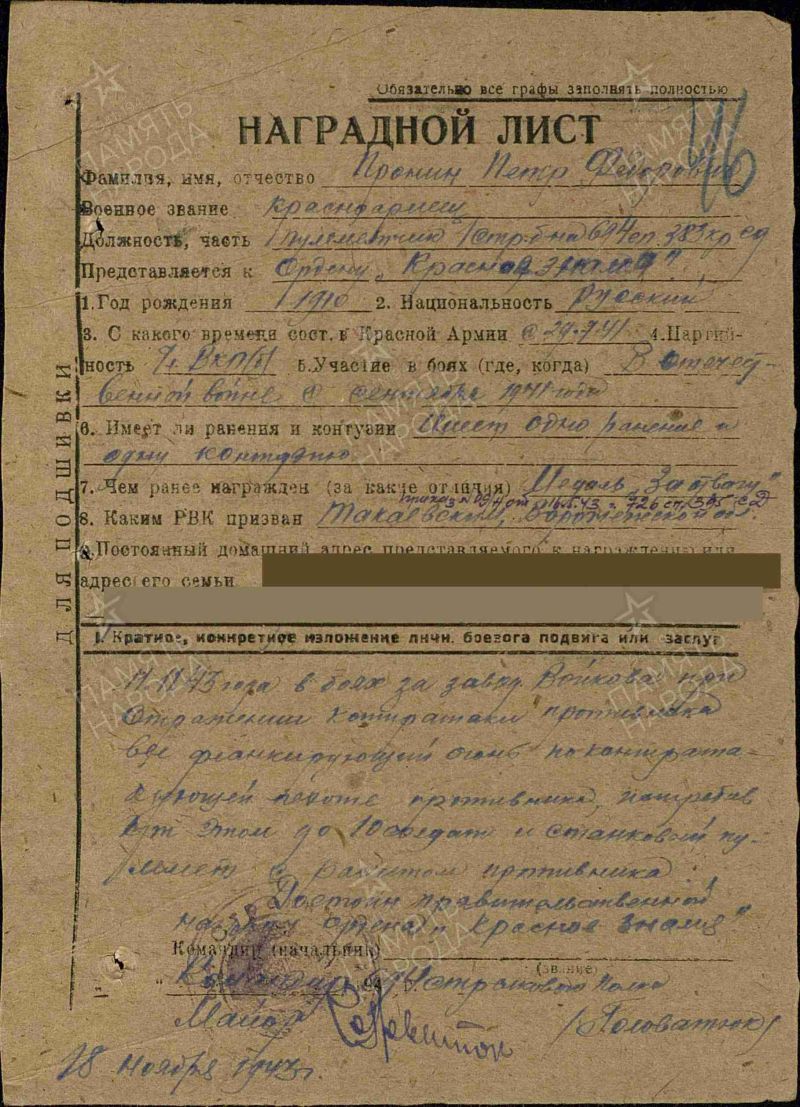 Обязательно все графы заполнять полностью
НАГРАДНОЙ ЛИСТ
Фамилия, имя, отчество Пронин Петр Федорович
Военное звание красноармеец
Должность, часть Пулеметчик 1 стр. б-на 694 сп. 383 кр сд
Представляется к Ордену „Красное знамя".
1. Год рождения 1910 2. Национальность Русский
3. С какого времени сост. в Красной Армии с 29.7.41 4. Партий-
ность чл ВКП(б) 5. Участие в боях (где, когда) В отечест-
венной войне с сентября 1941 года
6. Имеет ли ранения и контузии Имеет одно ранение и
одну контузию
7. Чем ранее награжден (за какие отличия) Медаль „За отвагу"
от 16.5.43 726 сп СД
8. Каким РВК призван Воронежской обл.
9. Постоянный домашний адрес представляемого к награждению или
адрес его семьи
I. Краткое, конкретное изложение личн. боевого подвига или заслуг
11.11.43 года в боях за завод Войкова при
отражении контратаки противника
вел фланкирующий огонь по контрата-
кующей пехоте противника, истребив
при этом до 10 солдат и станковый пу-
лемет с расчетом противника
Достоин правительственной
награды ордена „Красное знамя"
Командир (начальник)
(звание)
Командир 694 стрелкового полка
Майор (Головатюк)
18 ноября 1943 г.
ДЛЯ ПОДШИВКИ
ПАМЯТЬ НАРОДА